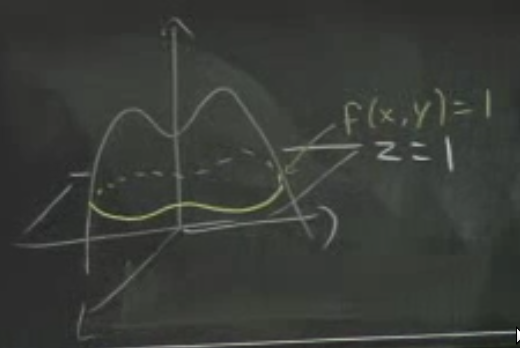 f(x,y)=1
z=1